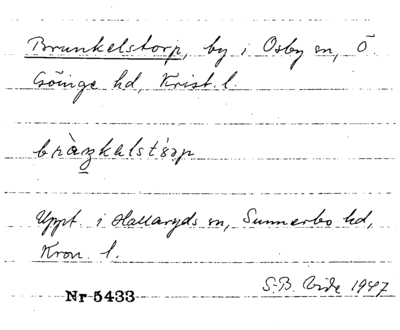 Brunkelstorp, by i Osby sn, Ö
Göinge hd, Krist. l.
Uppt. i Hallaryds sn, Sunnerbo hd,
Kron. l.
S-B. Vide 1947
Nr 5433